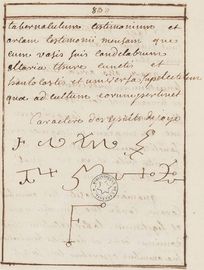 80
tabernaculum testimonium et
arcam testimonii mensam que
cum vasis suis candelabrum
altaria thure cunctis et
universa supelectelem
quæ ad cultum eorum pertinet
Caractere des Esprits de